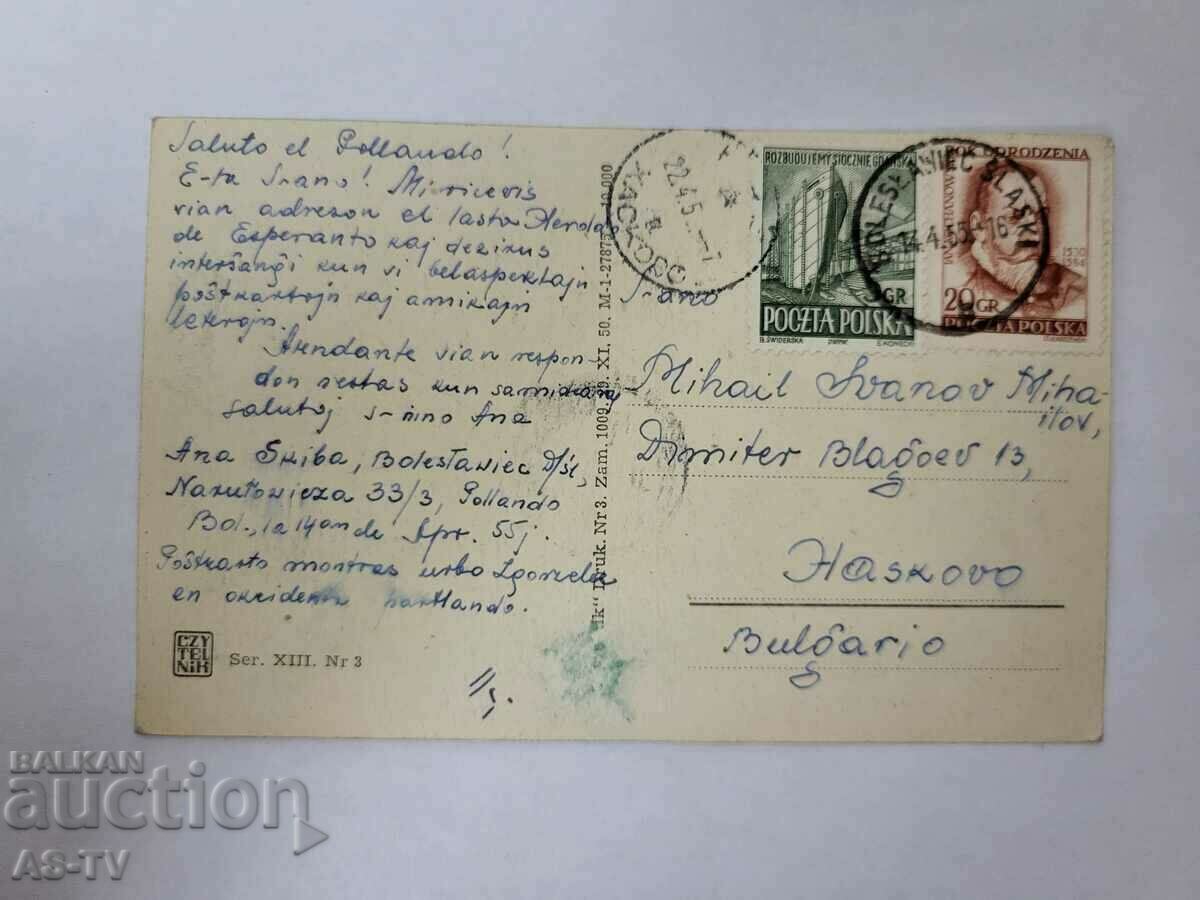 Saluto el Pollando!
E-ta S-ano! Mi ricevis
vian adreson el lasta Herdo
de Esperanto kaj dezirus
interŝanĝi kun vi belaspektajn
poŝtkartojn kaj amikajn
leterojn.
Atendante vian respon-
don restas kun samideanaj
salutoj s-ino Ana
Ana Skiba, Bolesławiec D/Śl,
Narutowicza 33/3, Pollando
Bol., la 14an de Apr. 55j.
Poŝtkarto montras urbo Zgorzelec
en okcidenta
CZY
TEL
NIK
Ser. XIII. Nr 3
lk" Druk. Nr 3. Zam. 1009. XI. 50. M-1-27875
ХАСКОВО
22.4.5
ROZBUDUJEMY STOCZNIE GDAŃSKĄ
GR
POCZTA POLSKA
B. ŚWIDERSKA
BOLESŁAWIEC ŚLĄSKI
14.4.55
16
ROK ODRODZENIA
JAN KOCHANOWSKI
1530
1584
20 GR
POCZTA POLSKA
S-ano
Mihail Ivanov Miha-
ilov,
Dimiter Blagoev 13,
Haskovo
Bulgario
BALKAN
auction
AS-TV